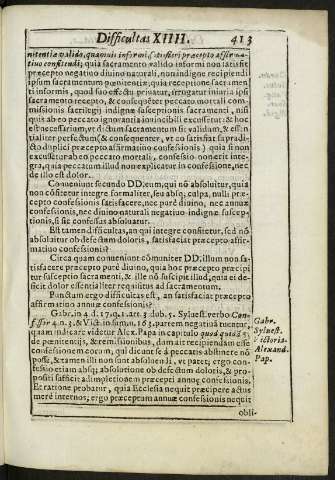 Difficultas XIIII. 413
nitentia valida, quamuis informi, satisfieri præcepto affirma-
tiuo confitendi; quia sacramento valido informi non iat is fit
præcepto negatiuo diuino naturali, non indigne recipiendi
ipsum sacramentum pœnitentiæ; quia receptione sacramen
ti informis, quod suo effectu priuatur, irrogatur iniuria ipsi
sacramento recepto, & consequẽter peccato mortali com-
missionis sacrilegij indignæ susceptionis Sacramenti, nisi
quis ab eo peccato ignorantia iouincibili excusetur: & hoc
est necessarium, vt dictum sacramentum sit validum, & essẽ-
tialiter perfectum (& consequenter, vt eo satisfiat supradi-
cto duplici præcepto affirmatiuo confessionis) quia si non
excusetur ab eo peccato mortali, confessio non erit inte-
gra, quia peccatum illud non explicatur in confessione, nec
de illo est dolor.
Conueniunt secundo DD. eum, qui nõ absoluitur, quia
non cõfitetur integre formaliter, seu absq; culpa, nulli præ-
cepto confessionis satisfacere, nec purè diuino, nec annuæ
confessionis, nec diuino naturali negatiuo indignæ suscep-
tionis, si sic confessus absoluatur.
Est tamen difficultas, an qui integre confitetur, sed nõ
absoluitur ob defectum doloris, satisfaciat præcepto affir-
matiuo confessionis?
Circa quam conueniunt cõmuniter DD. illum non sa-
tisfacere præcepto purè diuino, quia hoc præcepto præci-
tur susceptio sacramenti, & ille nõ suscipit illud, quia ei de-
ficit dolor essentialiter requisitus ad sacramentum.
Punctum ergo difficultas est, an satisfaciat præcepto
affirmatiuo annuæ confessionis?
Gabr. in 4. d. 17. q. 1. art. 3. dub. 5. Syluest. verbo Con-
fessor 4. n. 3. & Vict. in sum. n. 163. partem negatiuã tuentur,
quam indicare videtur Alex. Papa in capitulo quod quidã 5.
de pœnitentijs, & remissionibus, dum ait recipiendam esse
confessionem eorum, qui dicunt se à peccatis abstinere nõ
posse, & tamen illi non sunt absoluendi, vt patet; ergo con-
fessio etiam absq; absolutione ob defectum doloris, & pro-
positi sufficit adimpletionem præcepti annuę confessionis.
Et ratione probatur, quia Ecclesia nequit præcipere actus
merè internos; ergo præceptum annuæ confessionis nequit
obli-
Gabr.
Syluest.
Victoria.
Alexand.
Pap.